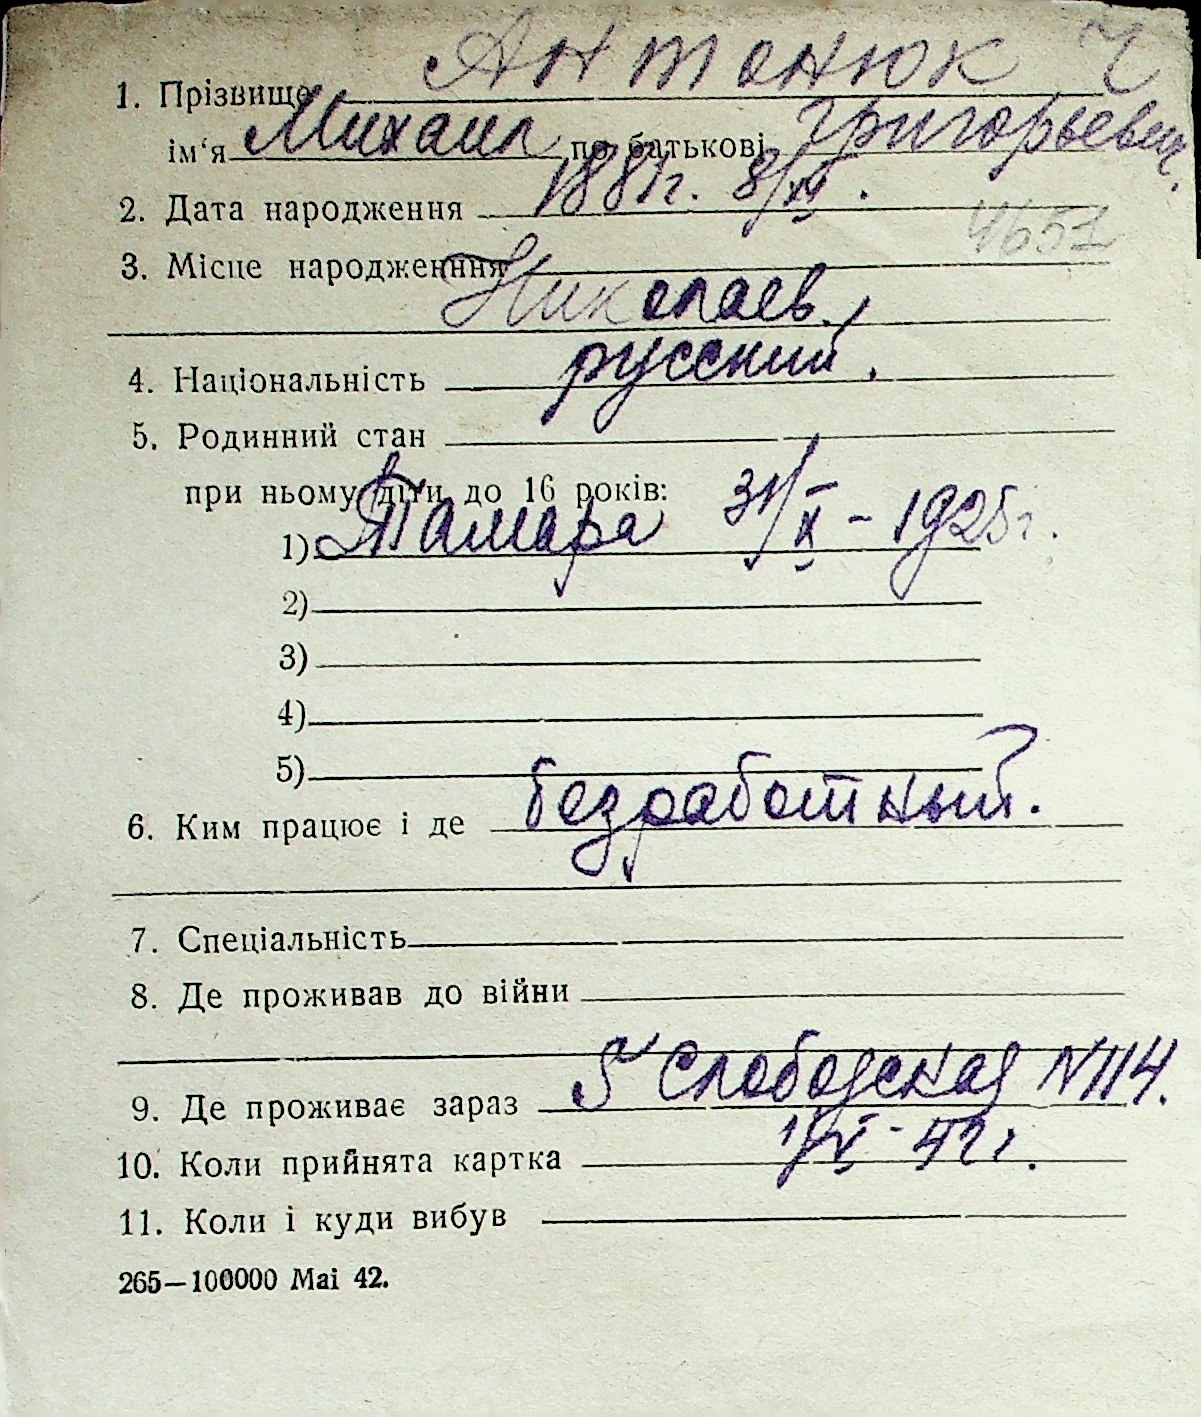 1. Прізвище Антонюк
ім‘я Михаил по батькові Григорьевич.
2. Дата народження 1881г. 8/XI.
4651
3. Місце народженння
Николаев.
4. Національність русский.
5. Родинний стан
при ньому діти до 16 років:
1) Тамара 31/X - 1925г.
2)
3)
4)
5)
6. Ким працює і де безработный.
7. Спеціальність
8. Де проживав до війни
9. Де проживає зараз 5 Слободская N 114.
10. Коли прийнята картка 1/VI - 42 г.
11. Коли і куди вибув
265—100000 Mai 42.